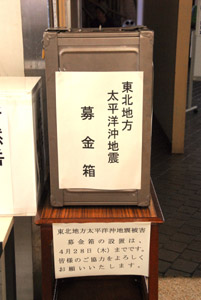 東北地方
太平洋沖地震
募金箱
東北地方太平洋沖地震被害
募金箱の設置は、
4月28日（木）までです。
皆様のご協力をよろしく
お願いいたします。